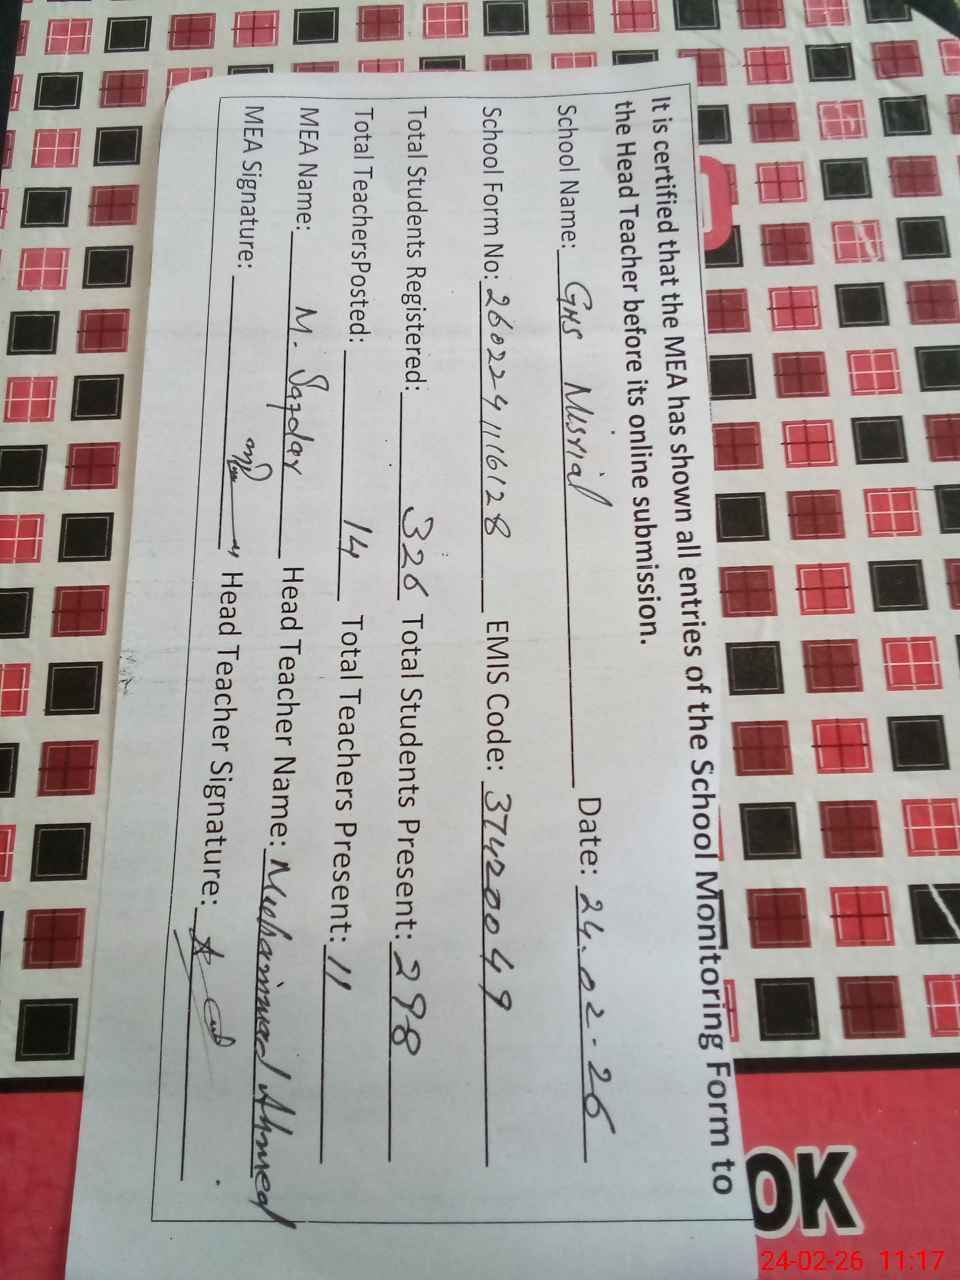 It is certified that the MEA has shown all entries of the School Monitoring Form to
the Head Teacher before its online submission.
School Name: GHS Misrial Date: 24.02-26
School Form No: 260224116128 EMIS Code: 37420049
Total Students Registered: 326 Total Students Present: 298
Total TeachersPosted: 14 Total Teachers Present: 11
MEA Name: M. Safdar Head Teacher Name: Muhammad Ahmed
MEA Signature: Head Teacher Signature:
OK
24-02-26 11:17